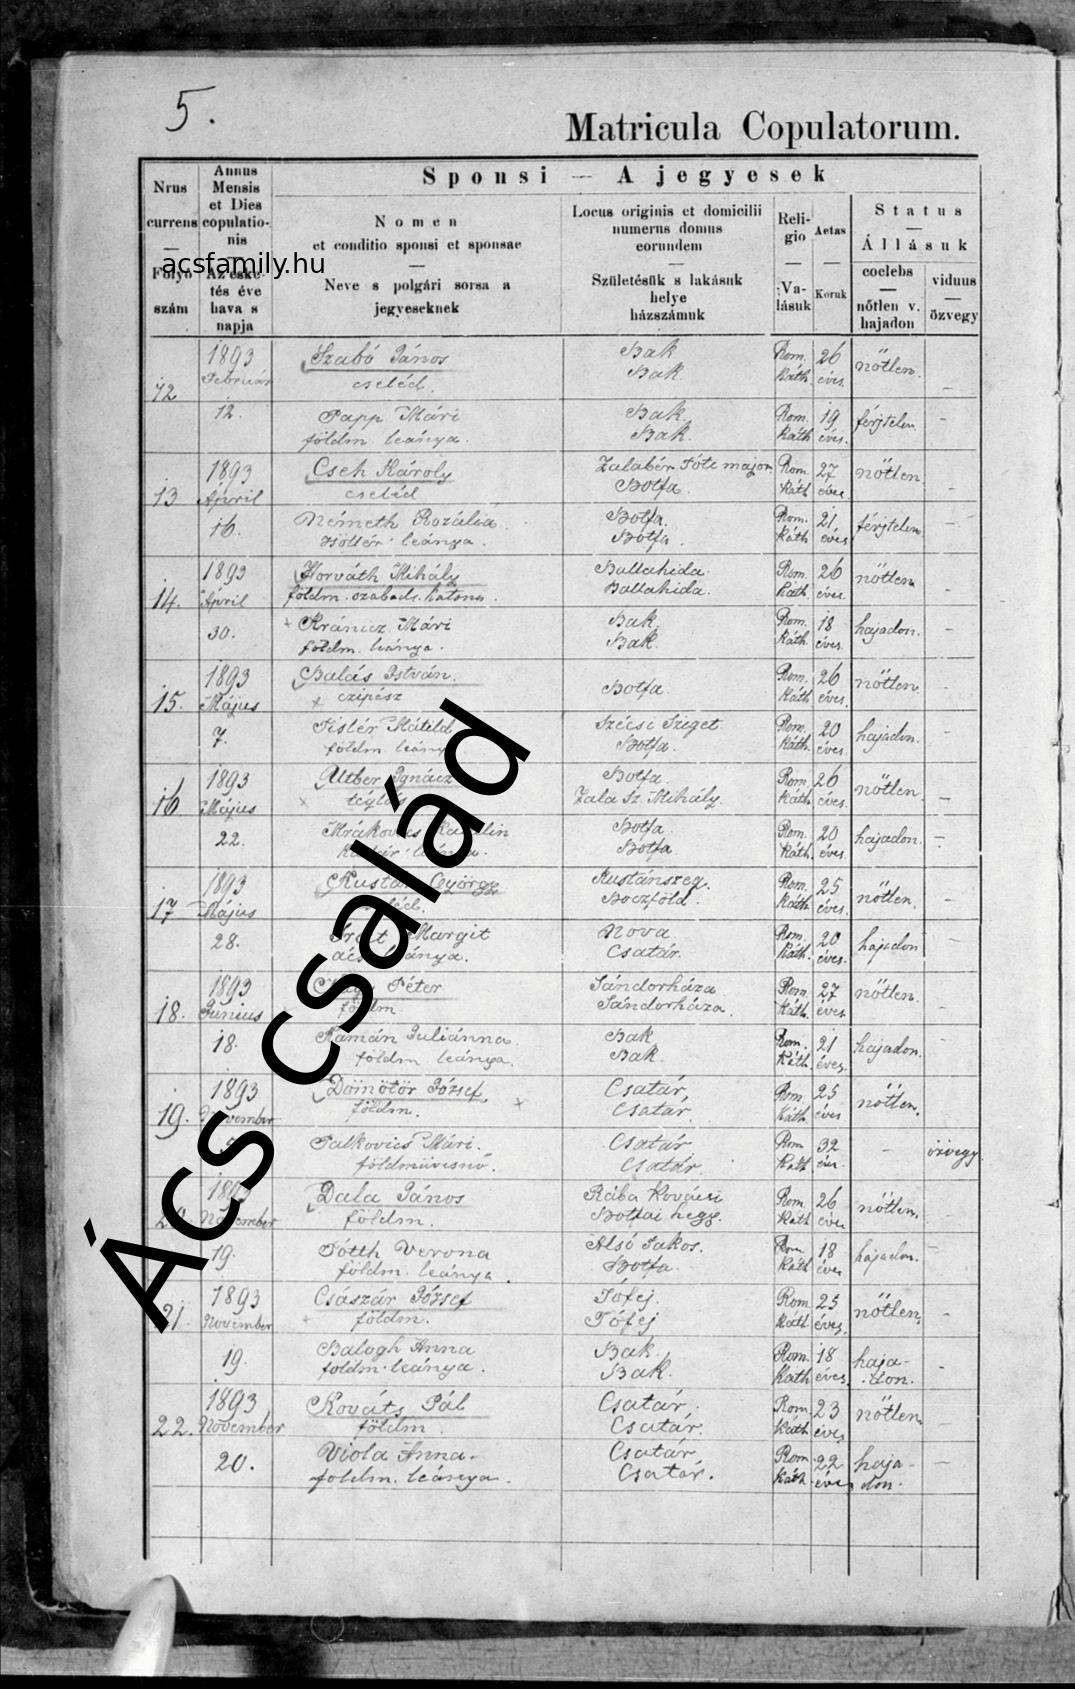 5.
Matricula Copulatorum.
Nrus
currens
—
Folyó
szám
Annus
Mensis
et Dies
copulatio-
nis
Az eske-
tés éve
hava s
napja
Sponsi — A jegyesek
Nomen
et conditio sponsi et sponsae
—
Neve s polgári sorsa a
jegyeseknek
Locus originis et domicilii
numerus domus
eorundem
—
Születésük s lakásuk
helye
házszámuk
Reli-
gio
—
Va-
lásuk
Aetas
—
Koruk
Status
—
Állásuk
coelebs
—
nőtlen v.
hajadon
viduus
—
özvegy
acsfamily.hu
12 1893 Szabó János Bak Rom. 26 nőtlen.
Február cseléd. Bak Káth. éves. —
12. Papp Mári Bak. Rom. 19 férjtelen —
földm. leánya. Bak. Káth. éves.
13 1893 Cseh Károly Zalabér Tóti major Rom. 27 nőtlen
April cseléd Botfa. Káth. éves —
16. Németh Rozália Botfa. Rom. 21 férjtelen —
leánya. Botfa. Káth. éves
14. 1893 Horváth Mihály Ballahida. Rom. 26 nőtlen
April földm. szabads. katona. Ballahida. Káth. éves. —
30. Kránicz Mári Bak. Rom. 18 hajadon. —
földm. leánya. Bak. Káth. éves.
15. 1893 Balás István. Botfa. Rom. 26 nőtlen.
Május czipész Káth. éves. —
7. Mátild Szécsi Sziget. Rom. 20 hajadon. —
földm. Botfa. Káth. éves.
16 1893 Ignácz Botfa. Rom. 26 nőtlen.
Május Zala Sz. Mihály. Káth. éves. —
22. Botfa Rom. 20 hajadon. —
Botfa Káth. éves.
17 1893 György Kustánszeg. Rom. 25 nőtlen.
Május Boczföld. Káth. éves. —
28. Margit Nova. Rom. 20 hajadon —
Csatár. Káth. éves.
18. 1893 Péter Sándorháza Rom. 27 nőtlen.
Junius földm. Sándorháza. Káth. éves —
18. Kámán Juliánna. Bak Rom. 21 hajadon. —
földm. leánya. Bak. Káth. éves.
19. 1893 Dömötör József, Csatár, Rom. 25 nőtlen.
November földm. Csatár. Káth. éves —
Palkovics Mári. Csatár Rom. 32 — özvegy.
földmüvesnő. Csatár. Káth. éves.
20. 1893 Dala János Rába Kovácsi Rom. 26 nőtlen.
November földm. Botfai hegy. Káth. éves —
19. Tótth Verona Alsó Pakos. Rom. 18 hajadon. —
földm. leánya. Botfa. Káth. éves
21. 1893 Császár József Tófej. Rom. 25 nőtlen.
November földm. Tófej Káth. éves. —
19. Balogh Anna Bak. Rom. 18 haja-
földm. leánya. Bak. Káth. éves. don. —
22. 1893 Kováts Pál Csatár. Rom. 23 nőtlen.
November földm Csatár. Káth. éves. —
20. Viola Anna. Csatár Rom. 22 haja- —
földm. leánya. Csatár. Káth. éves. don.
Ács család